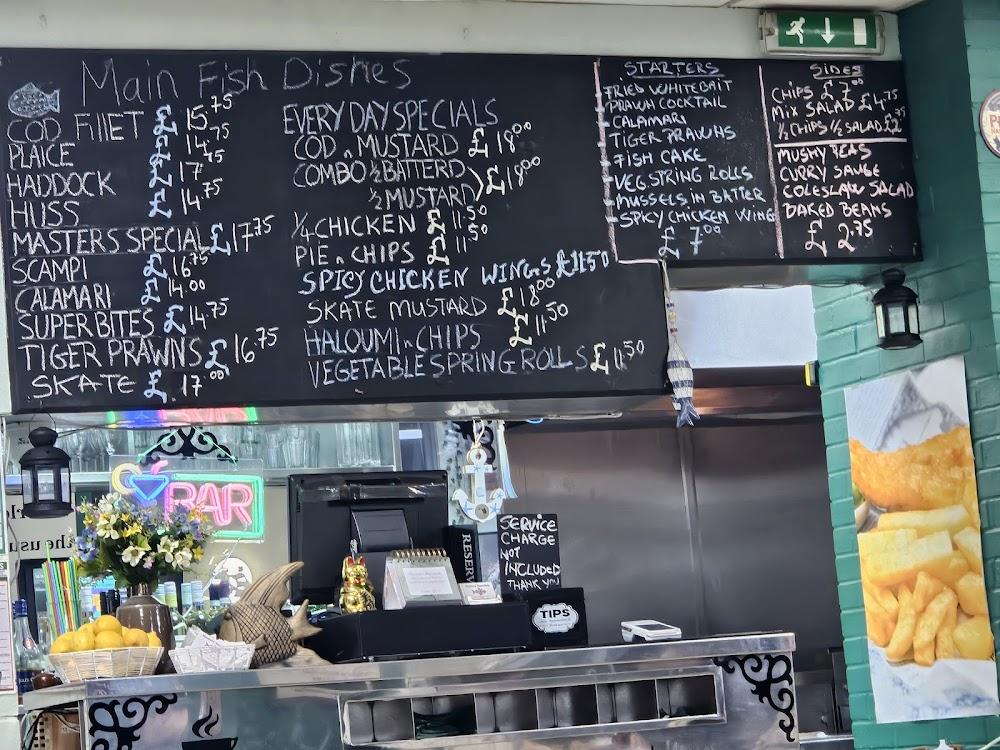 Main Fish Dishes
COD FILLET £ 15.75
PLAICE £ 14.75
HADDOCK £ 17.45
HUSS £ 14.75
MASTERS SPECIAL £17.75
SCAMPI £ 16.75
CALAMARI £ 14.00
SUPERBITES £ 14.75
TIGER PRAWNS £ 16.75
SKATE £ 17.00
EVERY DAY SPECIALS
COD n MUSTARD £ 18.00
COMBO ½ BATTERD
½ MUSTARD) £18.00
¼ CHICKEN £ 11.50
PIE n CHIPS £ 11.50
SPICY CHICKEN WINGS £11.50
SKATE MUSTARD £18.00
HALOUMI n CHIPS £11.50
VEGETABLE SPRING ROLLS £11.50
STARTERS
FRIED WHITEBAIT
PRAWN COCKTAIL
CALAMARI
TIGER PRAWNS
FISH CAKE
VEG STRING ROLLS
MUSSELS IN BATTER
SPICY CHICKEN WING
£ 7.00
SIDES
CHIPS £ 7.00
MIX SALAD £4.75
½ CHIPS ½ SALAD £5.35
MUSHY PEAS
CURRY SAUGE
COLESLAW SALAD
BAKED BEANS
£ 2.75
BAR
RESERV
SERVICE
CHARGE
NOT
INCLUDED
THANK YOU
TIPS
the usu